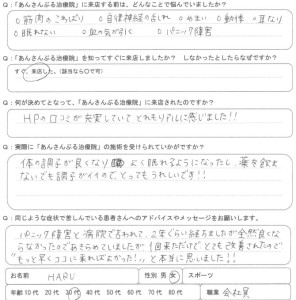 Q:「あんさんぶる治療院」に来店する前は、どんなことで悩んでいましたか?
○筋肉のこわばり ○自律神経の乱れ ○めまい ○動悸 ○耳なり
○眠れない ○血の気が引く ○パニック障害
Q:「あんさんぶる治療院」を知ってすぐに来店しましたか? しなかったとしたらなぜですか?
すぐ、来店した。(該当なら○で可)
Q:何が決めてとなって、「あんさんぶる治療院」に来店されたのですか?
HPの口コミが充実していて とてもリアルに感じました!!
Q:実際に「あんさんぶる治療院」の施術を受けられていかがですか?
体の調子が良くなり よく眠れるようになったし、薬を飲ま
ないでも調子がイイので、とってもうれしいです!!
Q:同じような症状で苦しんでいる患者さんへのアドバイスやメッセージをお願いします。
パニック障害と病院で言われて、2年ぐらい経ちましたが全然良くな
らなかったのであきらめていましたが1回来ただけで とても改善されたので
"もっと早くココに来ればよかった!!"と本当に思いました!!
お名前 HARU 性別 男 女 スポーツ
年齢 10代 20代 30代 40代 50代 60代 70代 80代 職業 会社員